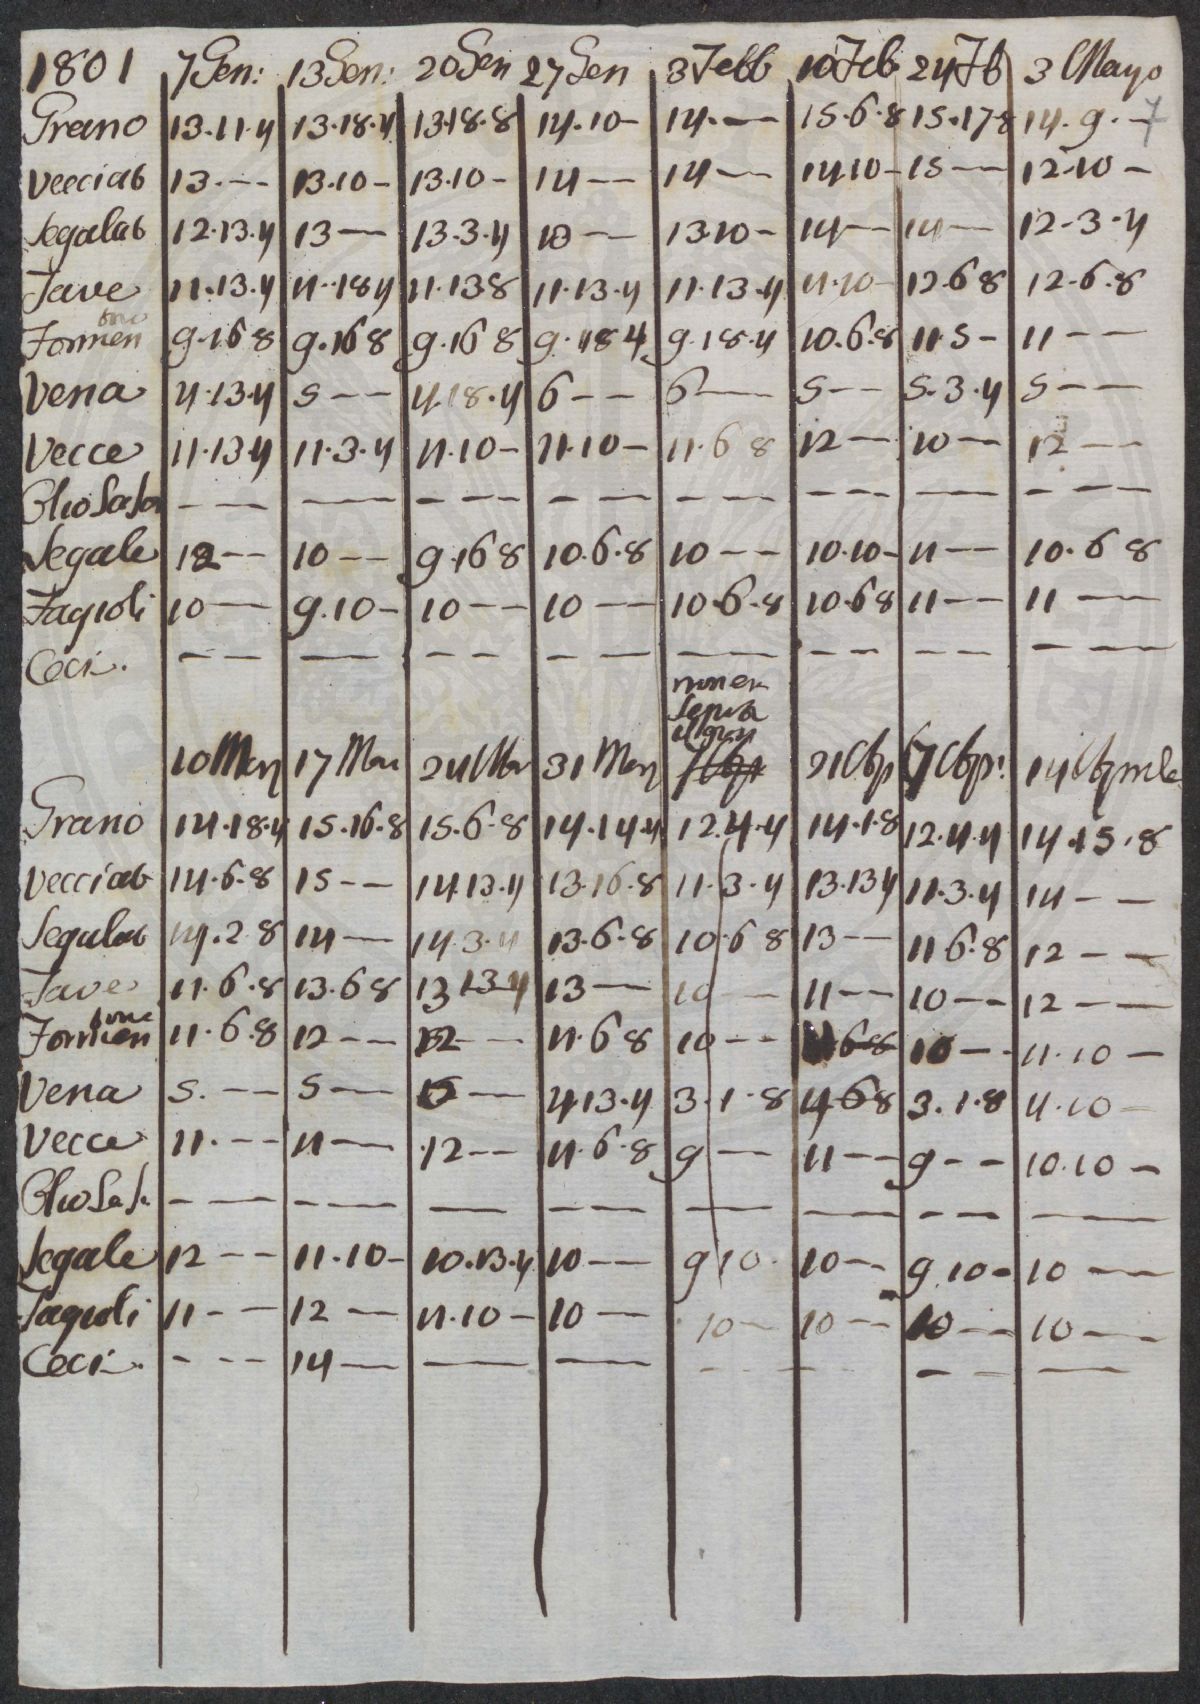 1801 7 Gen: 13 Gen: 20 Gen 27 Gen 3 Febb 10 Feb 24 Fb 3 Mayo
Grano 13.11.4 13.18.4 13.18.8 14.10- 14.— 15.6.8 15.17.8 14.9.- 7
Vecciab 13.-- 13.10- 13.10- 14-- 14-- 14.10- 15-- 12.10-
Segalab 12.13.4 13— 13.3.4 13— 13.10- 14-- 14— 12.3.4
Fave 11.13.4 11.18.4 11.13.8 11.13.4 11.13.4 11.10- 12.6.8 12.6.8
tone
Formen 9.16.8 9.16.8 9.16.8 9.18.4 9.18.4 10.6.8 11.5- 11--
Vena 4.13.4 5-- 4.18.4 6-- 6— 5-- 5.3.4 5--
Vecce 11.13.4 11.3.4 11.10- 11.10- 11.6.8 12— 10— 12—
-- -- --- -- -- --- -- ---
Segale 12-- 10-- 9.16.8 10.6.8 10-- 10.10- 11-- 10.6.8
Fagioli 10— 9.10- 10-- 10-- 10.6.8 10.6.8 11-- 11—
Ceci. -- -- -- -- -- -- -- --
non er
10 Mar 17 Mar 24 Mar 31 Mar 14 Aprile
Grano 14.18.4 15.16.8 15.6.8 14.14.4 12.4.4 14.1.8 12.4.4 14.15.8
Vecciab 14.6.8 15-- 14.13.4 13.16.8 11.3.4 13.13.4 11.3.4 14--
Segalab 14.2.8 14— 14.3.4 13.6.8 10.6.8 13-- 11.6.8 12--
Fave 11.6.8 13.6.8 13.13.4 13— 10— 11-- 10-- 12--
tone
Formen 11.6.8 12-- 12-- 11.6.8 10-- 6.8 10-- 11.10-
Vena 5.-- 5— — 4.13.4 3.1.8 4.6.8 3.1.8 4.10-
Vecce 11.-- 11— 12-- 11.6.8 9— 11-- 9-- 10.10-
-- --- — -- -- — -- —
Segale 12-- 11.10- 10.13.4 10-- 9.10. 10-- 9.10- 10—
Fagioli 11-- 12— 11.10- 10— 10- 10-- 10-- 10—
Ceci. --- 14— — — -- -- — —